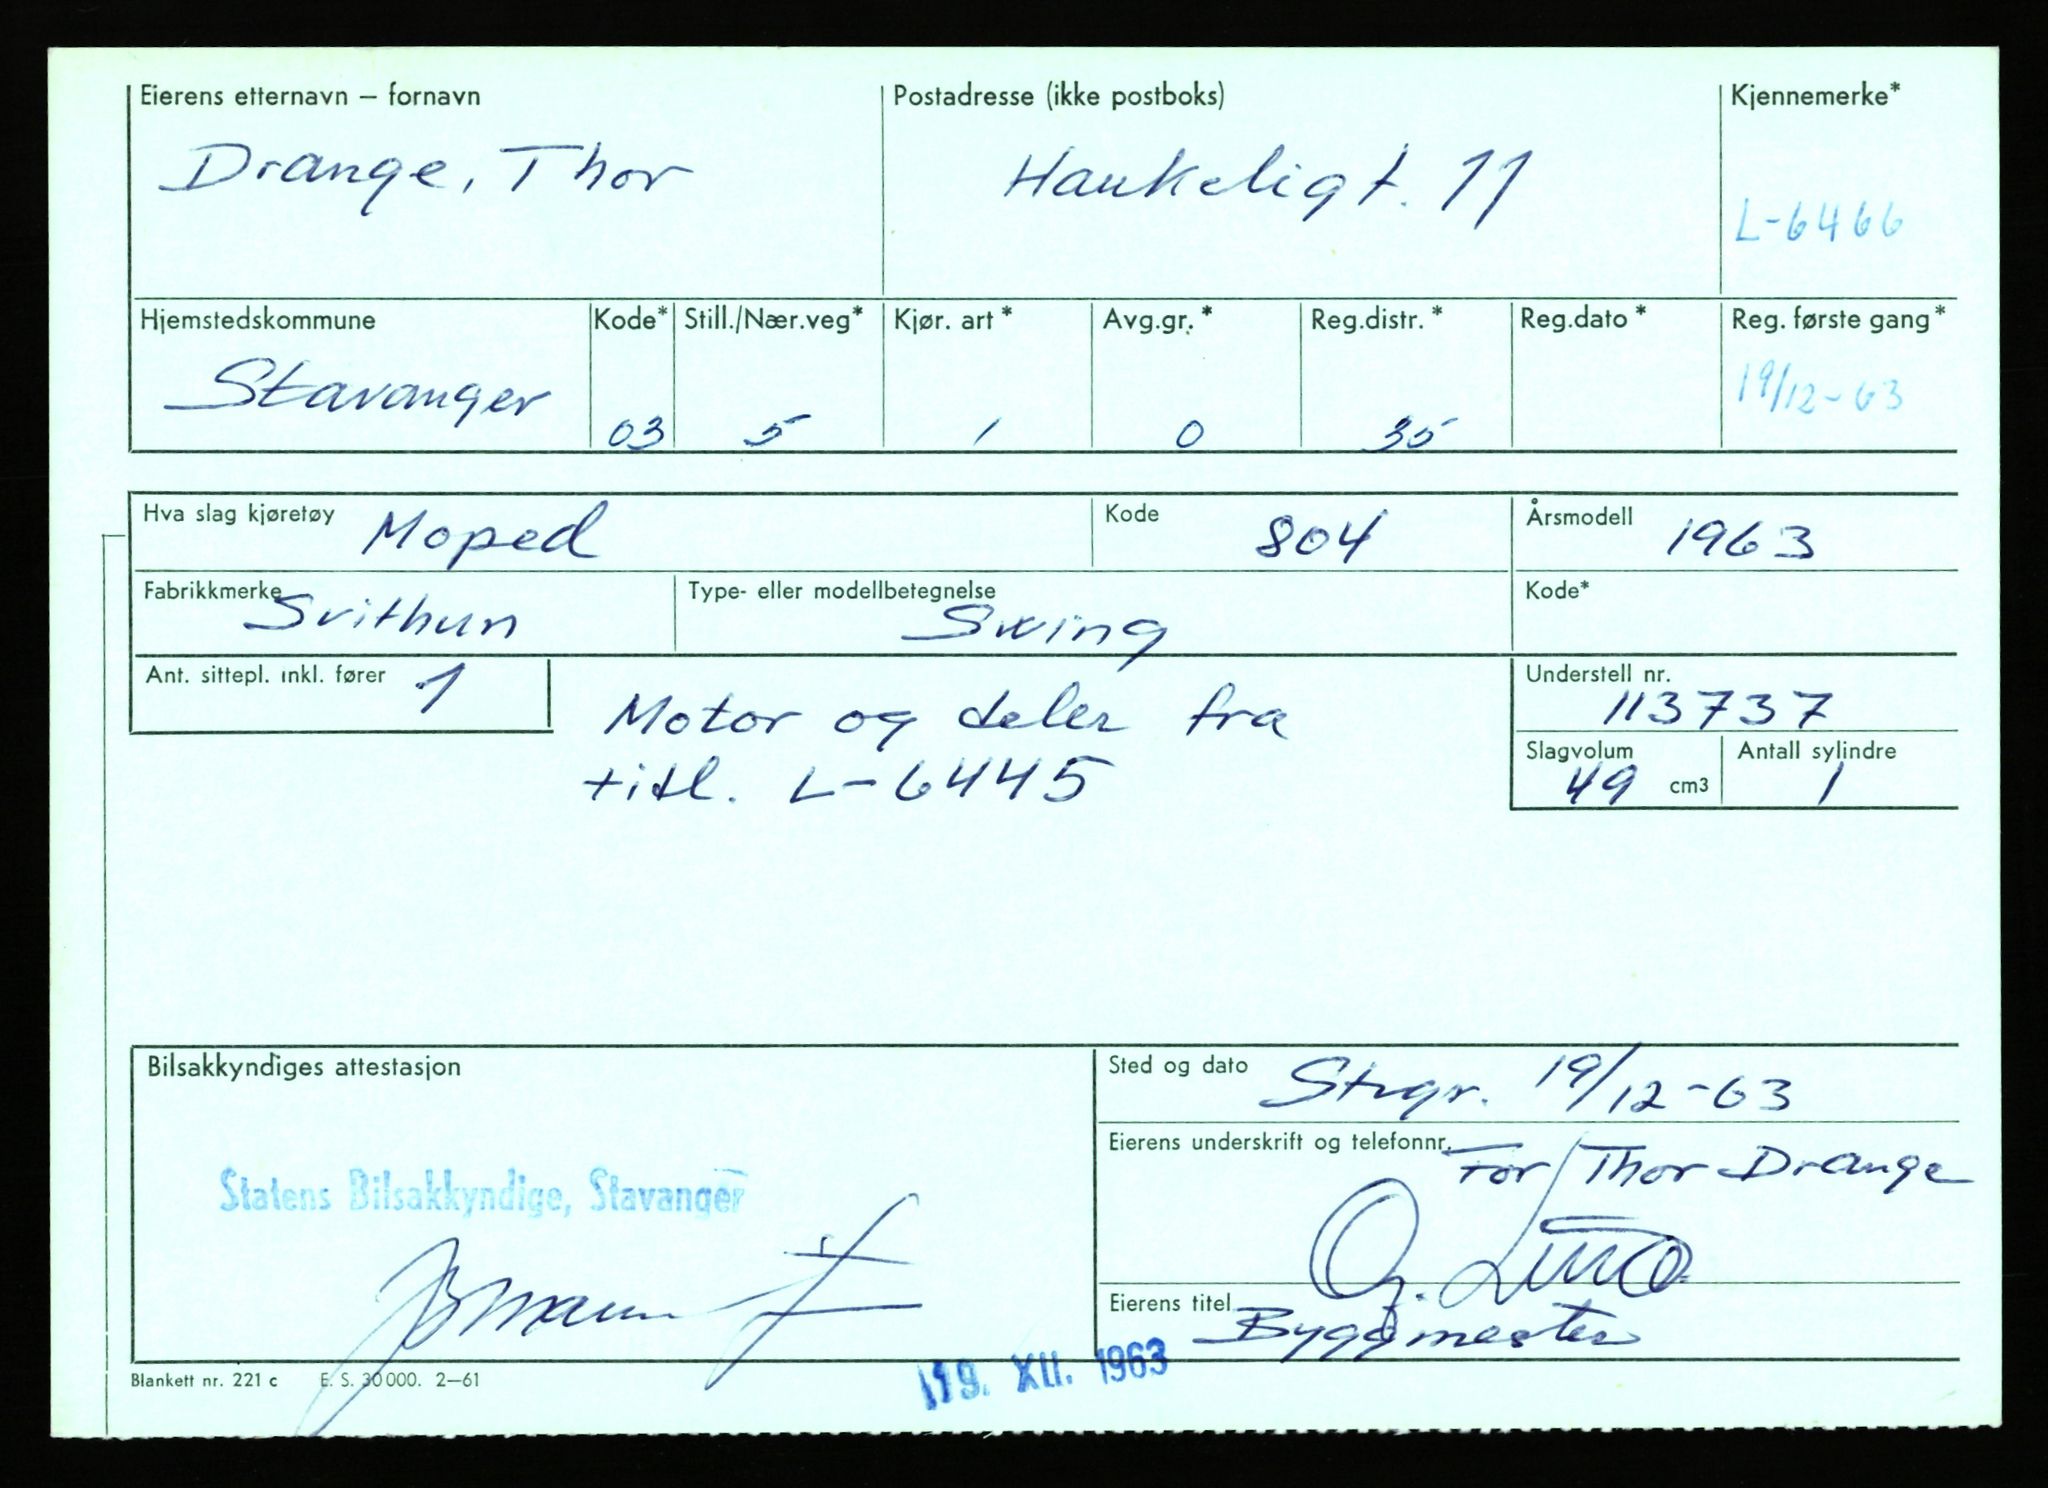 Eierens etternavn – fornavn
Drange, Thor
Postadresse (ikke postboks)
Haukeligt. 11
Kjennemerke*
L-6466
Hjemstedskommune
Stavanger
Kode*
03
Still./Nær.veg*
5
Kjør. art *
1
Avg.gr. *
0
Reg.distr. *
35
Reg.dato *
Reg. første gang *
19/12-63
Hva slag kjøretøy
Moped
Kode
804
Årsmodell
1963
Fabrikkmerke
Svithun
Type- eller modellbetegnelse
Swing
Kode*
Ant. sittepl. inkl. fører
1
Motor og deler fra
titl. L-6445
Understell nr.
113737
Slagvolum
49 cm3
Antall sylindre
1
Bilsakkyndiges attestasjon
Statens Bilsakkyndige, Stavanger
Sted og dato
Stvgr. 19/12-63
Eierens underskrift og telefonnr.
For Thor Drange
Eierens titel
Byggmester
Blankett nr. 221 c E. S. 30 000. 2–61
19. XII. 1963